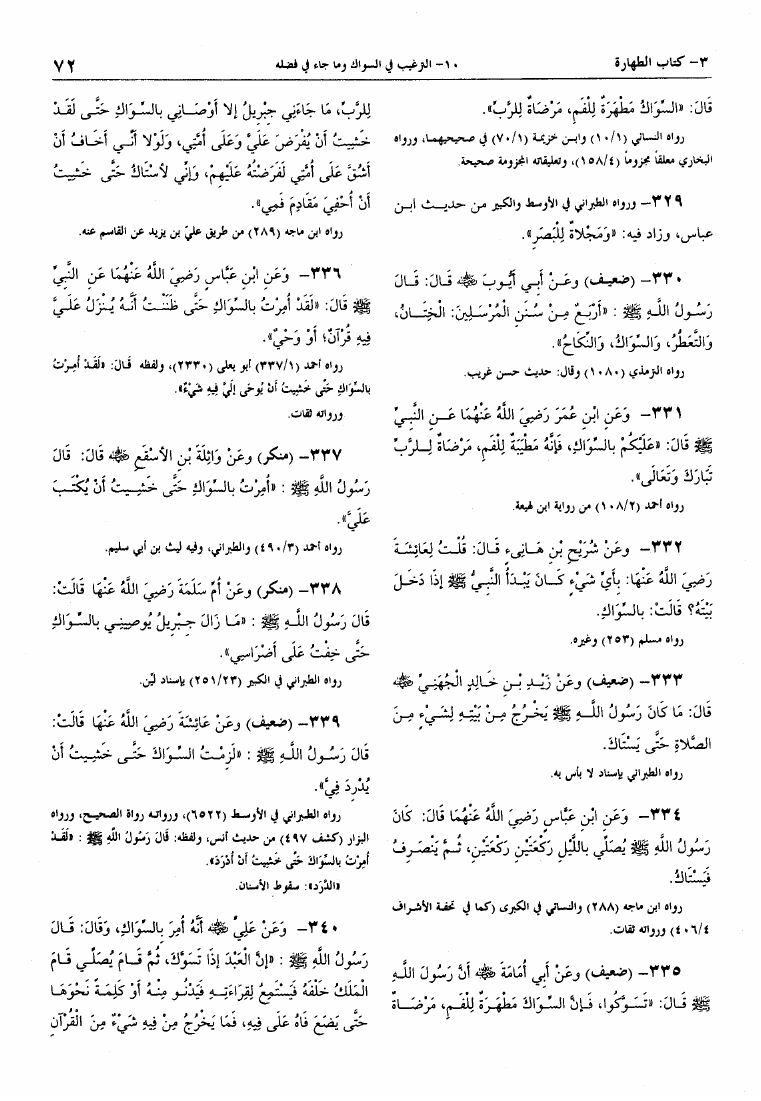 ٣- كتاب الطهارة
١٠- الترغيب في السواك وما جاء في فضله
٧٢
قَالَ: «السِّوَاكُ مَطْهَرَةٌ لِلْفَمِ، مَرْضَاةٌ لِلرَّبِّ».
رواه النسائي (١٠/١) وابـن خزيمة (٧٠/١) في صحيحيهمـا، ورواه
البخاري معلقاً مجزوماً (١٥٨/٤)، وتعليقاته المجزومة صحيحة.
٣٢٩- ورواه الطبراني في الأوسط والكبير مـن حديـث ابـن
عباس، وزاد فيه: «وَمَجْلاةٌ لِلْبَصَرِ».
٣٣٠- (ضعيف) وعَـنْ أَبـي أَيُّـوبَ ﷺ قَـالَ: قَـالَ
رَسُـولُ اللَّـهِ ﷺ : «أَرْبَـعٌ مِـنْ سُـنَنِ الْمُرْسَـلِينَ: الْخِتَـانُ،
وَالتَّعَطُّرُ، وَالسِّوَاكُ، وَالنِّكَاحُ».
رواه الترمذي (١٠٨٠) وقال: حديث حسن غريب.
٣٣١- وَعَنِ ابْنِ عُمَرَ رَضِيَ اللَّهُ عَنْهُمَا عَـنِ النَّبِيِّ
ﷺ قَالَ: «عَلَيْكُمْ بالسِّوَاكِ، فَإِنَّهُ مَطْيَبَةٌ لِلْفَمِ، مَرْضَاةٌ لِلـرَّبِّ
تَبَارَكَ وَتَعَالَى».
رواه أحمد (١٠٨/٢) من رواية ابن لهيعة.
٣٣٢- وعَـنْ شُرَيْحِ بْـنِ هَـانِىءٍ قَـالَ: قُلْـتُ لِعَائِشَـةَ
رَضِيَ اللَّهُ عَنْهَا: بِأَيِّ شَيْءٍ كَـانَ يَبْـدَأُ النَّبِـيُّ ﷺ إِذَا دَخَـلَ
بَيْتَهُ؟ قَالَتْ: بِالسِّوَاكِ.
رواه مسلم (٢٥٣) وغيره.
٣٣٣- (ضعيف) وعَنْ زَيْـدِ بْـنِ خَـالِدٍ الْجُهَنِـيِّ ﷺ
قَالَ: مَا كَانَ رَسُولُ اللَّـهِ ﷺ يَخْـرُجُ مِـنْ بَيْتِـهِ لِشَيْءٍ مِـنَ
الصَّلاةِ حَتَّى يَسْتَاكَ.
رواه الطبراني بإسناد لا بأس به.
٣٣٤- وَعَـنِ ابْنِ عَبَّاسٍ رَضِيَ اللَّهُ عَنْهُمَا قَالَ: كَانَ
رَسُولُ اللَّهِ ﷺ يُصَلِّي بِاللَّيْلِ رَكْعَتَيْنِ رَكْعَتَيْنِ، ثُـمَّ يَنْصَـرِفُ
فَيَسْتَاكُ.
رواه ابن ماجه (٢٨٨) والنسائي في الكبرى (كمـا في تحفـة الأشـراف
٤٠٦/٤) ورواته ثقات.
٣٣٥- (ضعيف) وعَنْ أَبِي أُمَامَةَ ﷺ أَنَّ رَسُولَ اللَّـهِ
ﷺ قَـالَ: «تَسَـوَّكُوا، فَـإِنَّ السِّوَاكَ مَطْهَرَةٌ لِلْفَمِ، مَرْضَـاةٌ
لِلرَّبِّ، مَا جَاءَنِي جِبْرِيلُ إلا أَوْصَـانِي بالسِّـوَاكِ حَتَّـى لَقَـدْ
خَشِيتُ أَنْ يُفْرَضَ عَلَيَّ وَعَلَى أُمَّتِي، وَلَوْلا أَنِّـي أَخَـافُ أَنْ
أَشُقَّ عَلَى أُمَّتِي لَفَرَضْتُهُ عَلَيْهِمْ، وَإِنِّي لأَسْتَاكُ حَتَّى خَشِيتُ
أَنْ أُحْفِيَ مَقَادِمَ فَمِي».
رواه ابن ماجه (٢٨٩) من طريق عليّ بن يزيد عن القاسم عنه.
٣٣٦- وَعَن ابْنِ عَبَّاسٍ رَضِيَ اللَّهُ عَنْهُمَا عَنِ النَّبِيِّ
ﷺ قَالَ: «لَقَدْ أُمِرْتُ بِالسِّوَاكِ حَتَّى ظَنَنْتُ أَنَّـهُ يُـنْزَلُ عَلَـيَّ
فِيهِ قُرْآنٌ؛ أَوْ وَحْيٌ».
رواه أحمد (٣٣٧/١) أبو يعلى (٢٣٣٠)، ولفظه قَـالَ: «لَقَـدْ أُمِـرْتُ
بالسِّوَاكِ حَتَّى خَشِيتُ أَنْ يُوحَى إِلَيَّ فِيهِ شَيْءٌ».
ورواته ثقات.
٣٣٧- (منكر) وعَنْ وَاثِلَةَ بْنِ الأَسْقَعِ ﷺ قَالَ: قَالَ
رَسُولُ اللَّهِ ﷺ : «أُمِرْتُ بالسِّوَاكِ حَتَّى خَشِـيتُ أَنْ يُكْتَـبَ
عَلَيَّ».
رواه أحمد (٤٩٠/٣) والطبراني، وفيه ليث بن أبي سليم.
٣٣٨- (منكر) وعَنْ أُمِّ سَلَمَةَ رَضِيَ اللَّهُ عَنْهَا قَالَتْ:
قَالَ رَسُولُ اللَّـهِ ﷺ : «مَـا زَالَ جِـبْرِيلُ يُوصِينِـي بالسِّـوَاكِ
حَتَّى خِفْتُ عَلَى أَضْرَاسِي».
رواه الطبراني في الكبير (٢٥١/٢٣) بإسناد ليّن.
٣٣٩- (ضعيف) وعَنْ عَائِشَةَ رَضِيَ اللَّهُ عَنْهَا قَالَتْ:
قَالَ رَسُـولُ اللَّهِ ﷺ : «لَزِمْـتُ السِّـوَاكَ حَتَّـى خَشِـيتُ أَنْ
يُدْرِدَ فِيَّ».
رواه الطبراني في الأوسط (٦٥٢٢)، ورواتـه رواة الصحيـح، ورواه
البزار (كشف ٤٩٧) من حديث أنس، ولفظه: قَالَ رَسُولُ اللَّهِ ﷺ : «لَقَـدْ
أُمِرْتُ بالسِّوَاكِ حَتَّى خَشِيتُ أَنْ أَدْرَدَ».
«الدَّرَد»: سقوط الأسنان.
٣٤٠- وَعَنْ عَلِيٍّ ﷺ أَنَّهُ أَمِرَ بِالسِّوَاكِ، وَقَالَ: قَـالَ
رَسُولُ اللَّهِ ﷺ : «إِنَّ الْعَبْدَ إِذَا تَسَوَّكَ، ثُمَّ قَـامَ يُصَلِّـي قَـامَ
الْمَلَكُ خَلْفَهُ فَيَسْتَمِعُ لِقِرَاءَتِـهِ فَيَدْنُـو مِنْـهُ أَوْ كَلِمَـةً نَحْوَهَـا
حَتَّى يَضَعَ فَاهُ عَلَى فِيهِ، فَمَا يَخْرُجُ مِنْ فِيهِ شَيْءٌ مِنَ الْقُرْآنِ